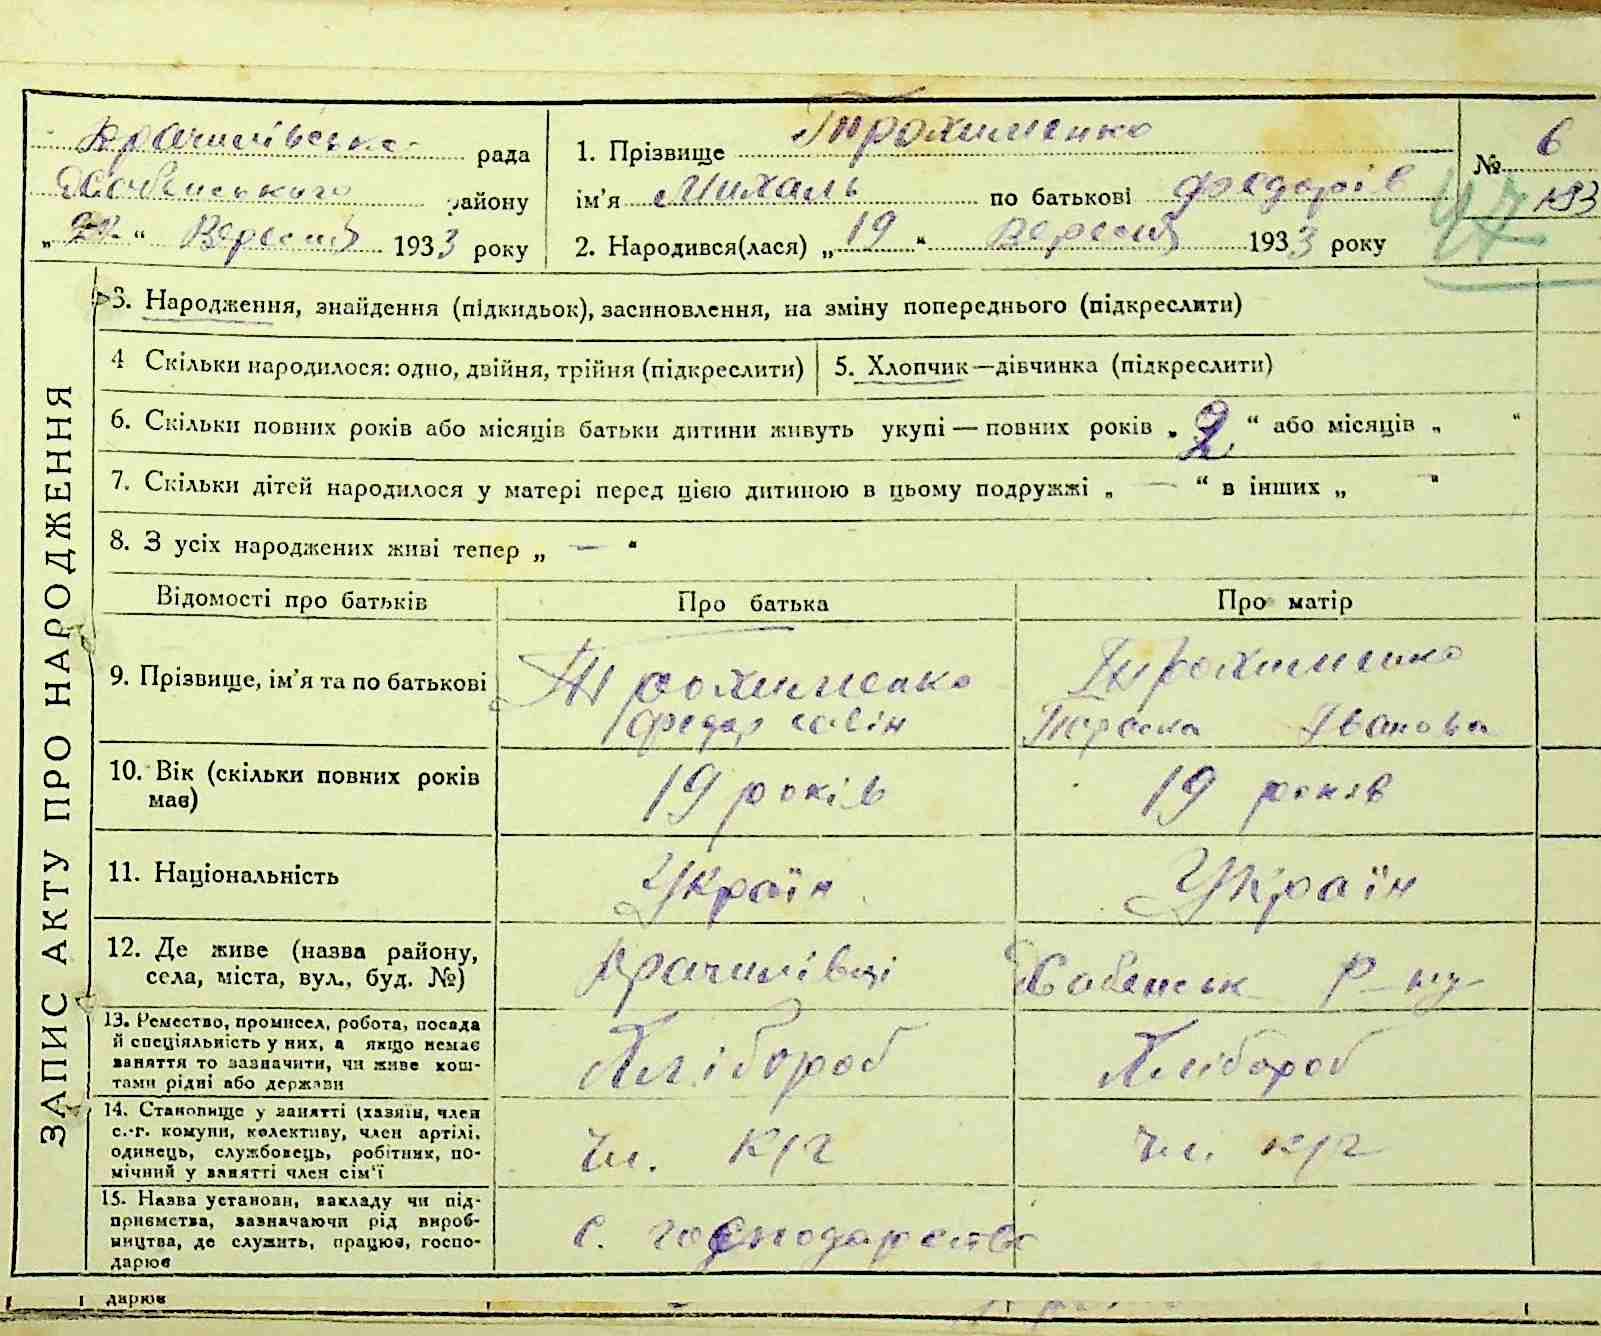 Крачилівська рада
района
„ 22 “ Вересня 1933 року
1. Прізвище Трохименко
ім'я Михаль по батькові Федорів
2. Народився(лася) „ 19 “ Вересня 1933 року
№ 6
47 193
ЗАПИС АКТУ ПРО НАРОДЖЕННЯ
3. Народження, знайдення (підкидьок), засиновлення, на зміну попереднього (підкреслити)
4 Скільки народилося: одно, двійня, трійня (підкреслити)
5. Хлопчик—дівчинка (підкреслити)
6. Скільки повних років або місяців батьки дитини живуть укупі — повних років „ 2 “ або місяців „ “
7. Скільки дітей народилося у матері перед цією дитиною в цьому подружжі „ — “ в інших „ “
8. З усіх народжених живі тепер „ — “
Відомості про батьків
Про батька
Про матір
9. Прізвище, ім'я та по батькові
Трохименко
Федар савін
Трохименко
Параска Іванова
10. Вік (скільки повних років
має)
19 років
19 років
11. Національність
Україн
Україн
12. Де живе (назва району,
села, міста, вул., буд. №)
Крачилівці
Р-ну
13. Ремество, промисел, робота, посада
й спеціяльність у них, а якщо немає
заняття то зазначити, чи живе кош-
тами рідні або держави
Хлібороб
Хлібороб
14. Становище у занятті (хазяїн, член
с.-г. комуни, колективу, член артілі,
одинець, службовець, робітник, по-
мічний у занятті член сім'ї
Чл. к/г
Чл. к/г
15. Назва установи, закладу чи під-
приємства, зазначаючи рід вироб-
ництва, де служить, працює, госпо-
дарює
с. господарство
дарює